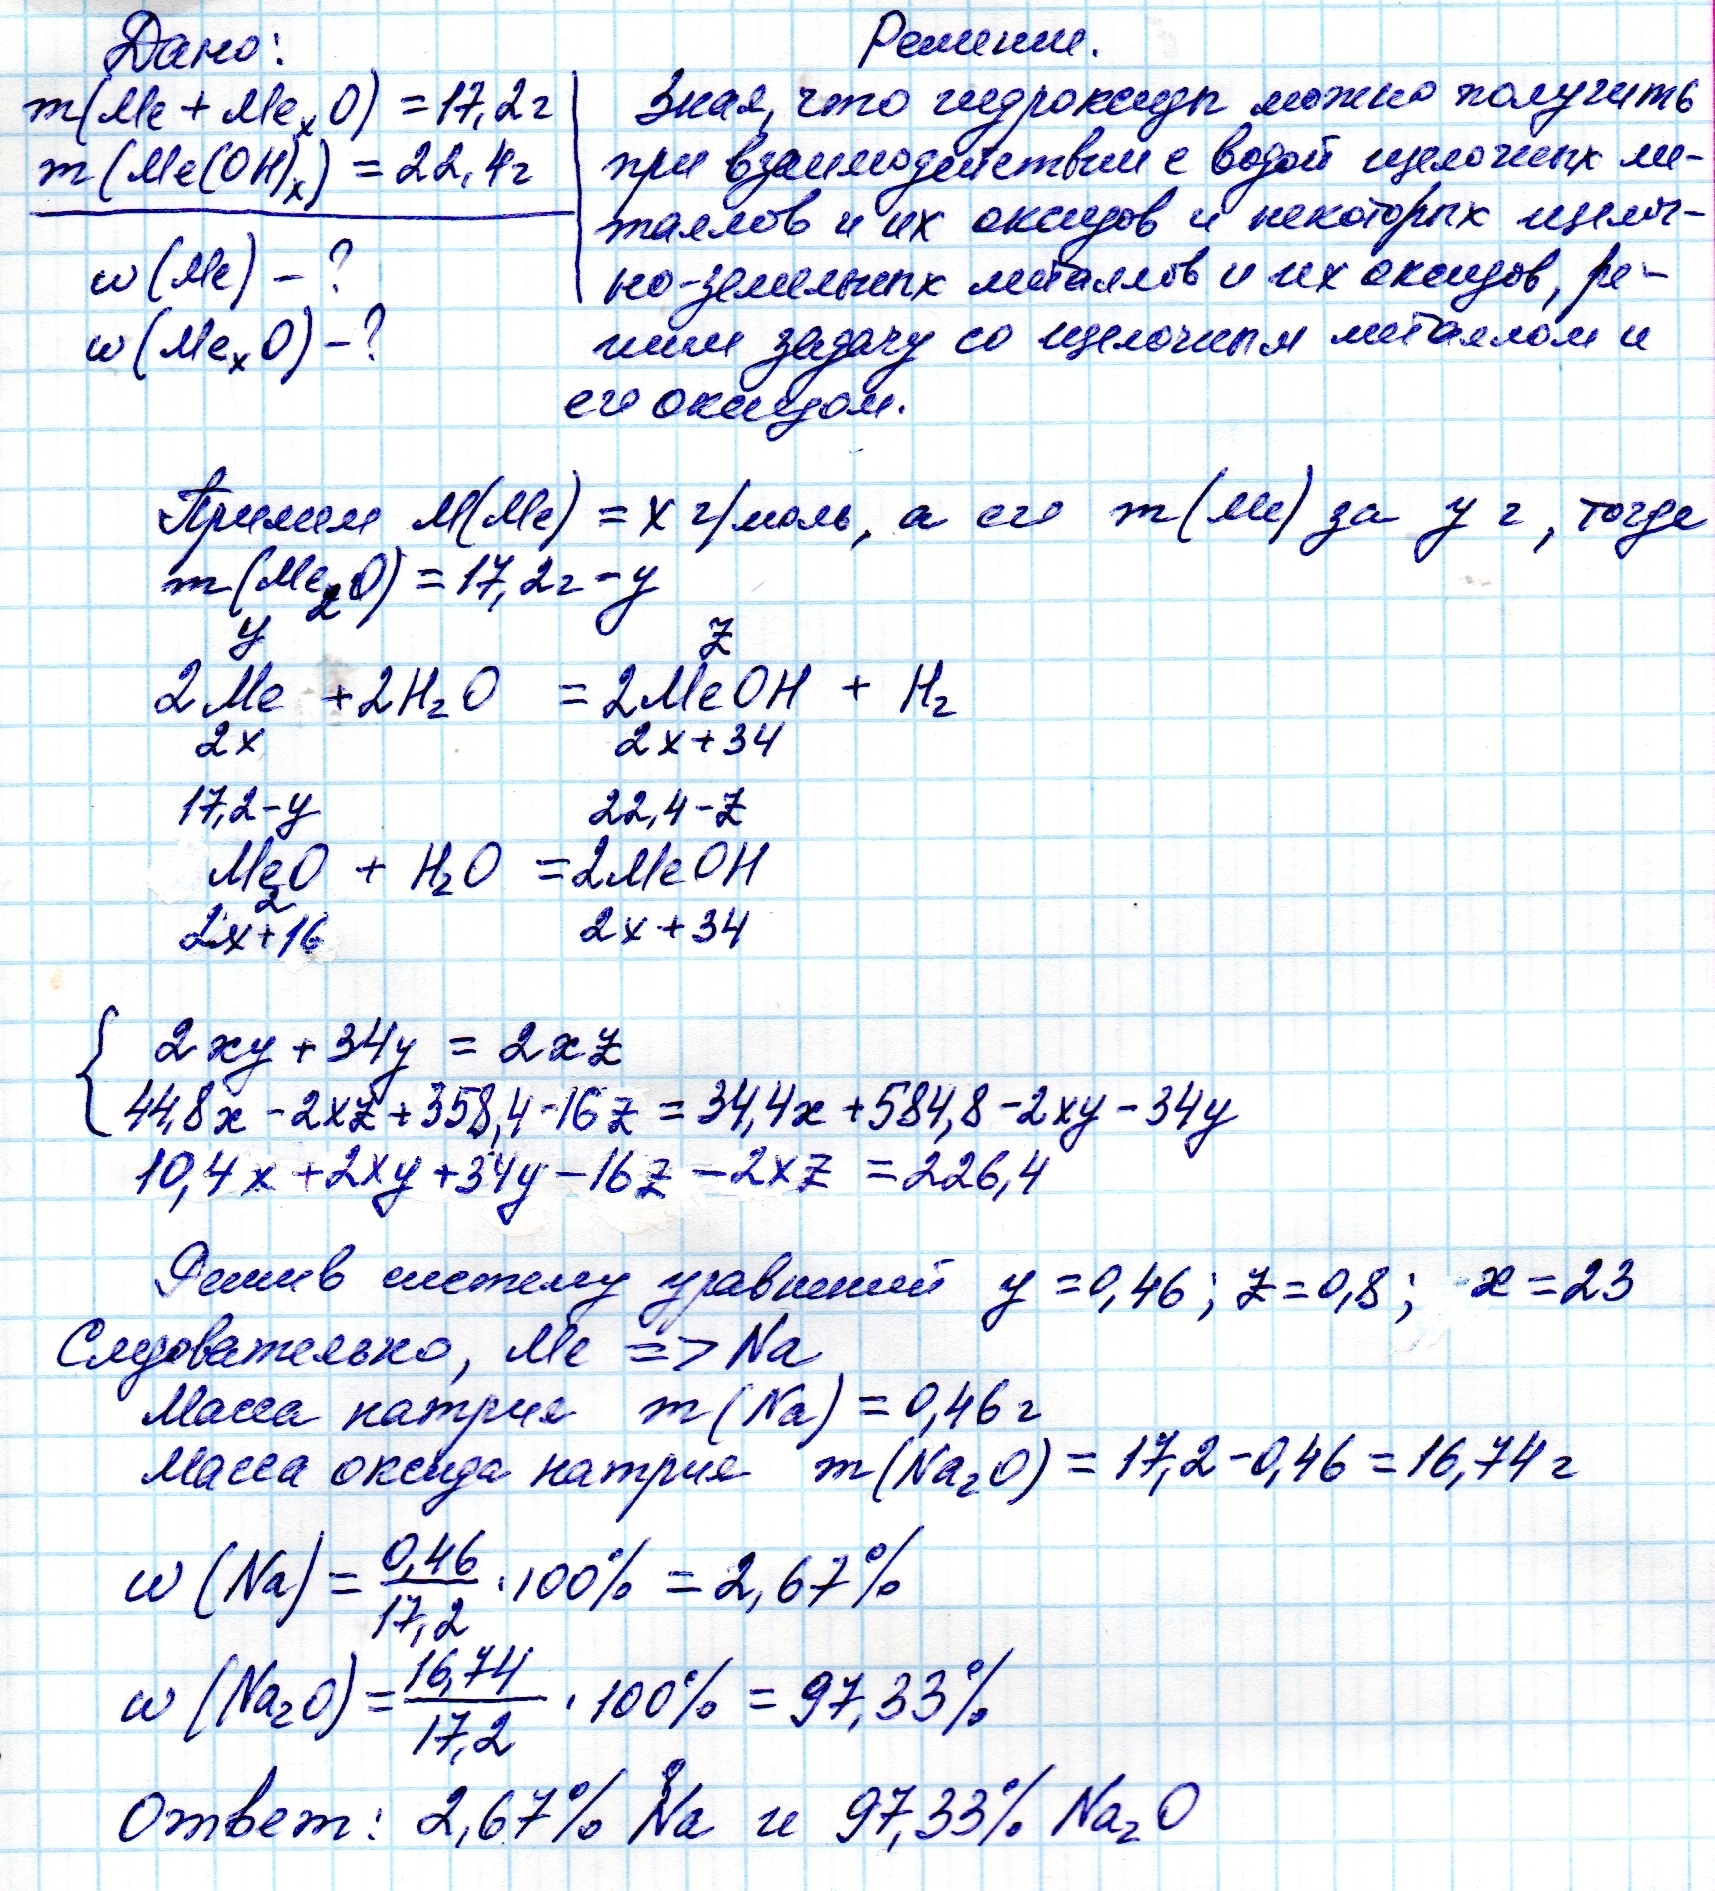 Дано:
Решение.
m(Me + MeₓO) = 17,2г
m(Me(OH)ₓ) = 22,4г
w(Me) - ?
w(MeₓO) - ?
Зная, что гидроксиды можно получить
при взаимодействии с водой щелочных ме-
таллов и их оксидов и некоторых щелоч-
но-земельных металлов и их оксидов, ре-
шим задачу со щелочным металлом и
его оксидом.
Примем M(Me) = x г/моль, а его m(Me) за y г, тогда
m(Me₂O) = 17,2г - y
y z
2Me + 2H₂O = 2MeOH + H₂
2x 2x+34
17,2-y 22,4-z
Me₂O + H₂O = 2MeOH
2x+16 2x+34
{ 2xy + 34y = 2xz
44,8x - 2xz + 358,4 - 16z = 34,4x + 584,8 - 2xy - 34y
10,4x + 2xy + 34y - 16z - 2xz = 226,4
Решив систему уравнений y = 0,46; z = 0,8; x = 23
Следовательно, Me => Na
Масса натрия m(Na) = 0,46г
Масса оксида натрия m(Na₂O) = 17,2 - 0,46 = 16,74г
w(Na) = 0,46/17,2 · 100% = 2,67%
w(Na₂O) = 16,74/17,2 · 100% = 97,33%
Ответ: 2,67% Na и 97,33% Na₂O